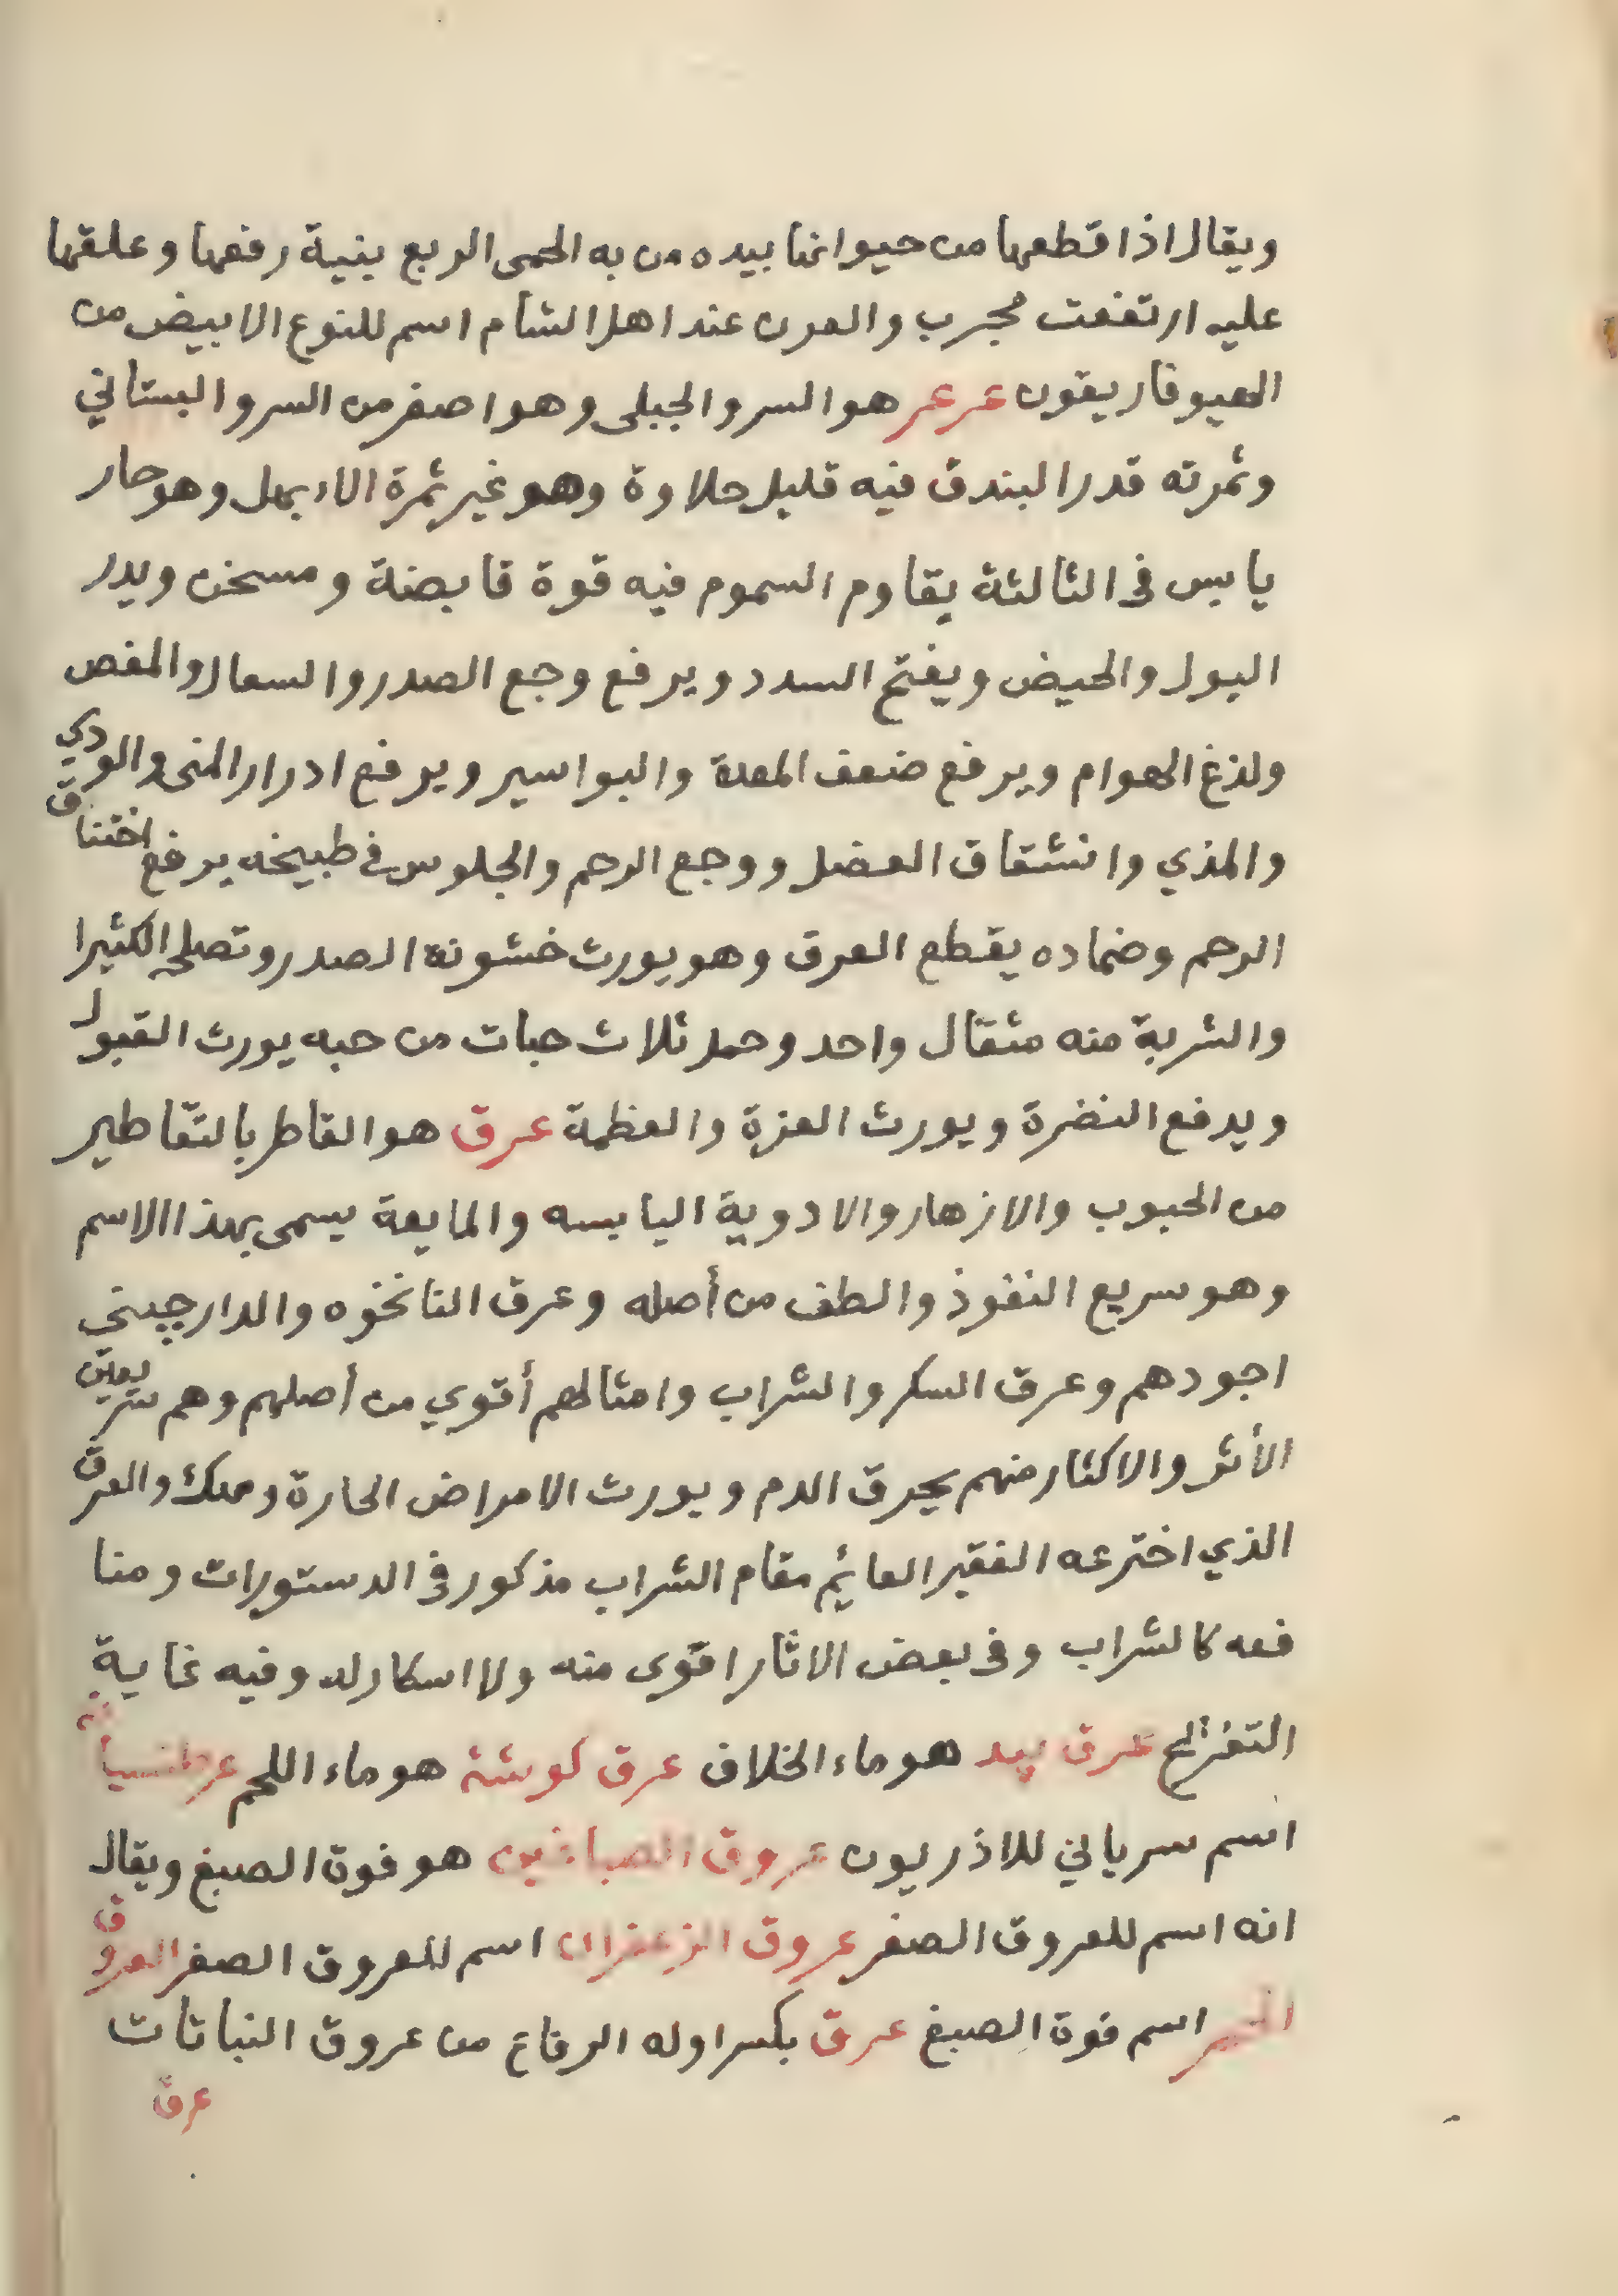 ويقال اذا قطعها من حيواتها بيده من به الحمى الربع بنية رفعها وعلقها
عليه ارتفعت مجرب والعرن عند اهل الشام اسم للنوع الابيض من
الهيوفاريقون عرعر هو السرو الجبلى وهو اصغر من السرو البستاني
وثمرته قدر البندق فيه قليل حلاوة وهو غير ثمرة الابهل وهو حار
يابس فى الثالثة يقاوم السموم فيه قوة قابضة ومسخن ويدر
البول والحيض ويفتح السدد ويرفع وجع الصدر والسعال والمغص
ولذغ الهوام ويرفع ضعف المعدة والبواسير ويرفع ادرار المنى والودي
والمذي وانشقاق العضل ووجع الرحم والجلوس في طبيخه يرفع اختناق
الرحم وضماده يقطع العرق وهو يورث خشونة الصدر وتصلحه الكثيرا
والشربة منه مثقال واحد وحمل ثلاث حبات من حبه يورث القبول
ويدفع النضرة ويورث العزة والعظمة عرق هو القاطر بالتقاطير
من الحبوب والازهار والادوية اليابسه والمايعة يسمى بهذا الاسم
وهو سريع النفوذ والطف من أصله وعرق النانخوه والدارچينى
اجودهم وعرق السكر والشراب وامثالهم أقوي من أصلهم وهم سريعين
الأثر والاكثار منهم يحرق الدم ويورث الامراض الحارة ومهلك والعرق
الذي اخترعه الفقير القائم مقام الشراب مذكور فى الدستورات ومنا
فعه كالشراب وفى بعض الاثار اقوى منه ولا اسكار له وفيه غاية
التفريح عرق بيد هو ماء الخلاف عرق كوشت هو ماء اللحم عرطنسيا
اسم سرياني للاذريون عروق الصباغين هو فوة الصبغ ويقال
انه اسم للعروق الصفر عروق الزعفران اسم للعروق الصفر العروق
الحمر اسم فوة الصبغ عرق بكسر اوله الرفاع من عروق النباتات
عرق